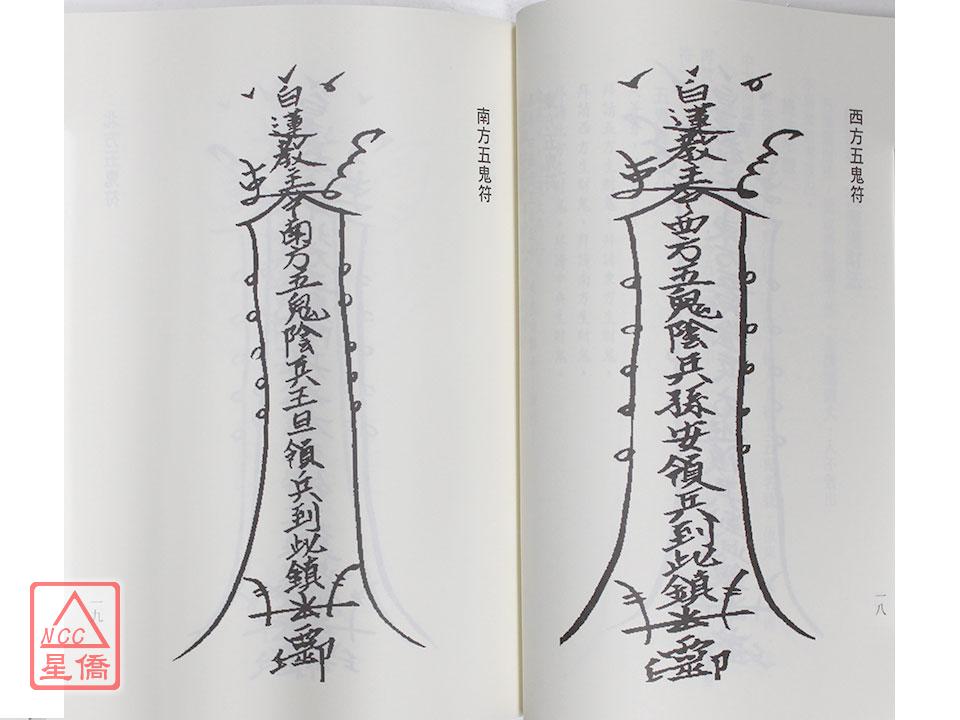 西方五鬼符
白蓮教主奉西方五鬼陰兵孫安領兵到此鎮
一八
南方五鬼符
白蓮教主奉南方五鬼陰兵王旦領兵到此鎮
一九
NCC
星僑